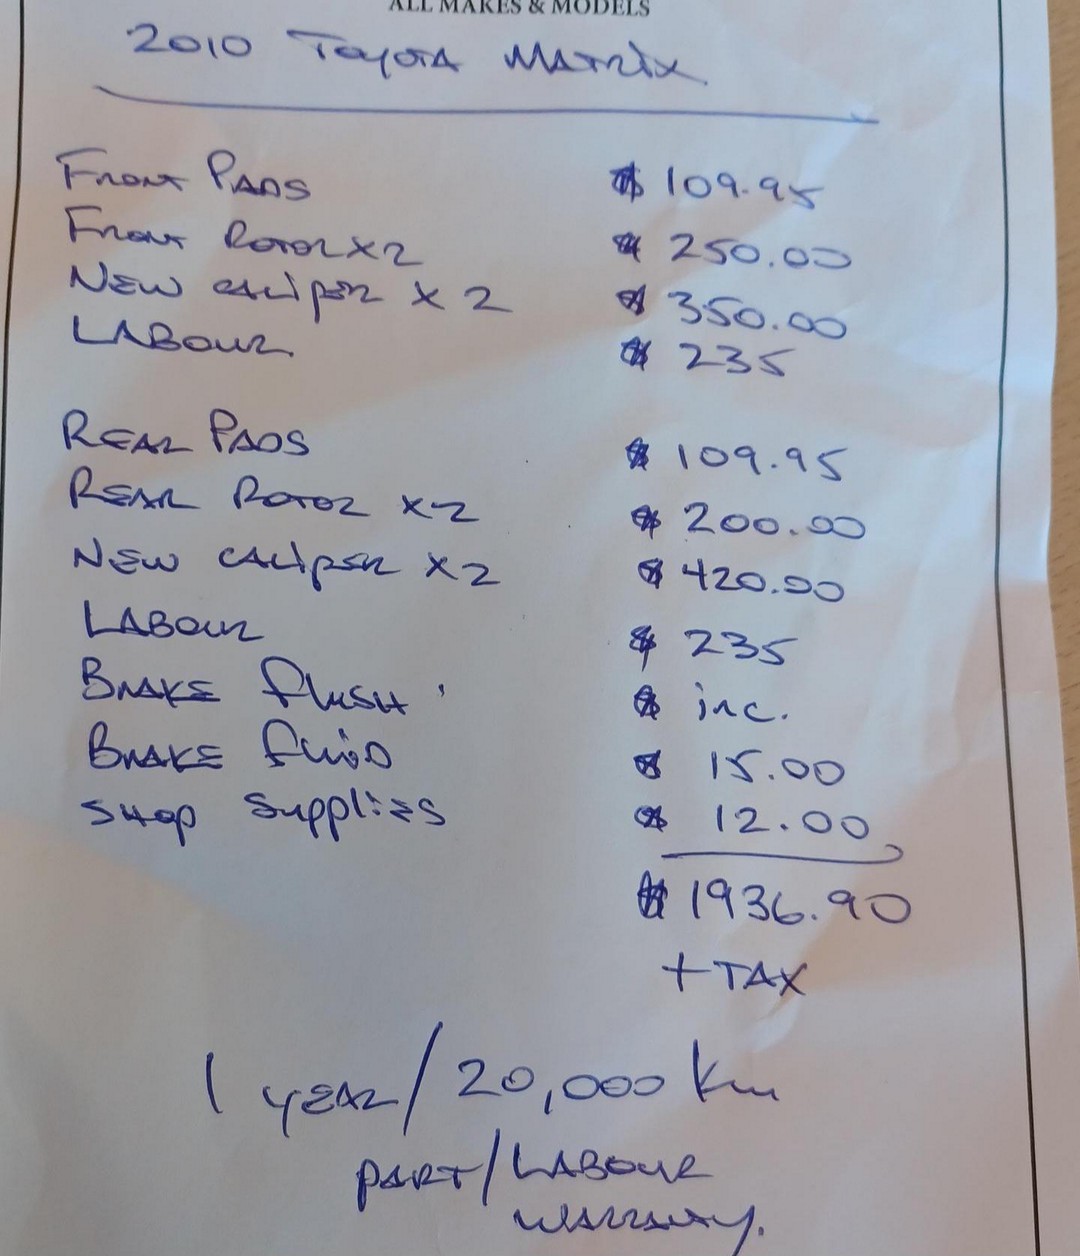 ALL MAKES & MODELS
2010 Toyota Matrix
Front Pads $ 109.95
Front Rotor x2 $ 250.00
New caliper x 2 $ 350.00
Labour $ 235
Rear Pads $ 109.95
Rear Rotor x2 $ 200.00
New caliper x2 $ 420.00
Labour $ 235
Brake flush $ inc.
Brake fluid $ 15.00
Shop Supplies $ 12.00
$ 1936.90
+ TAX
1 year/20,000 km
part/Labour
warranty.